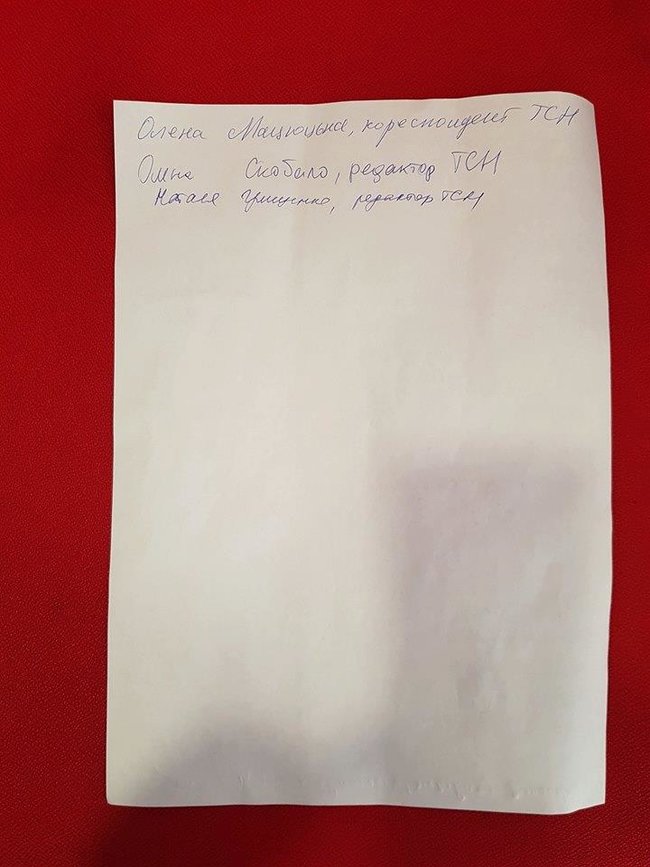 Олена Мацюцька, кореспондент ТСН
Скобало, редактор ТСН
Наталя редактор ТСН